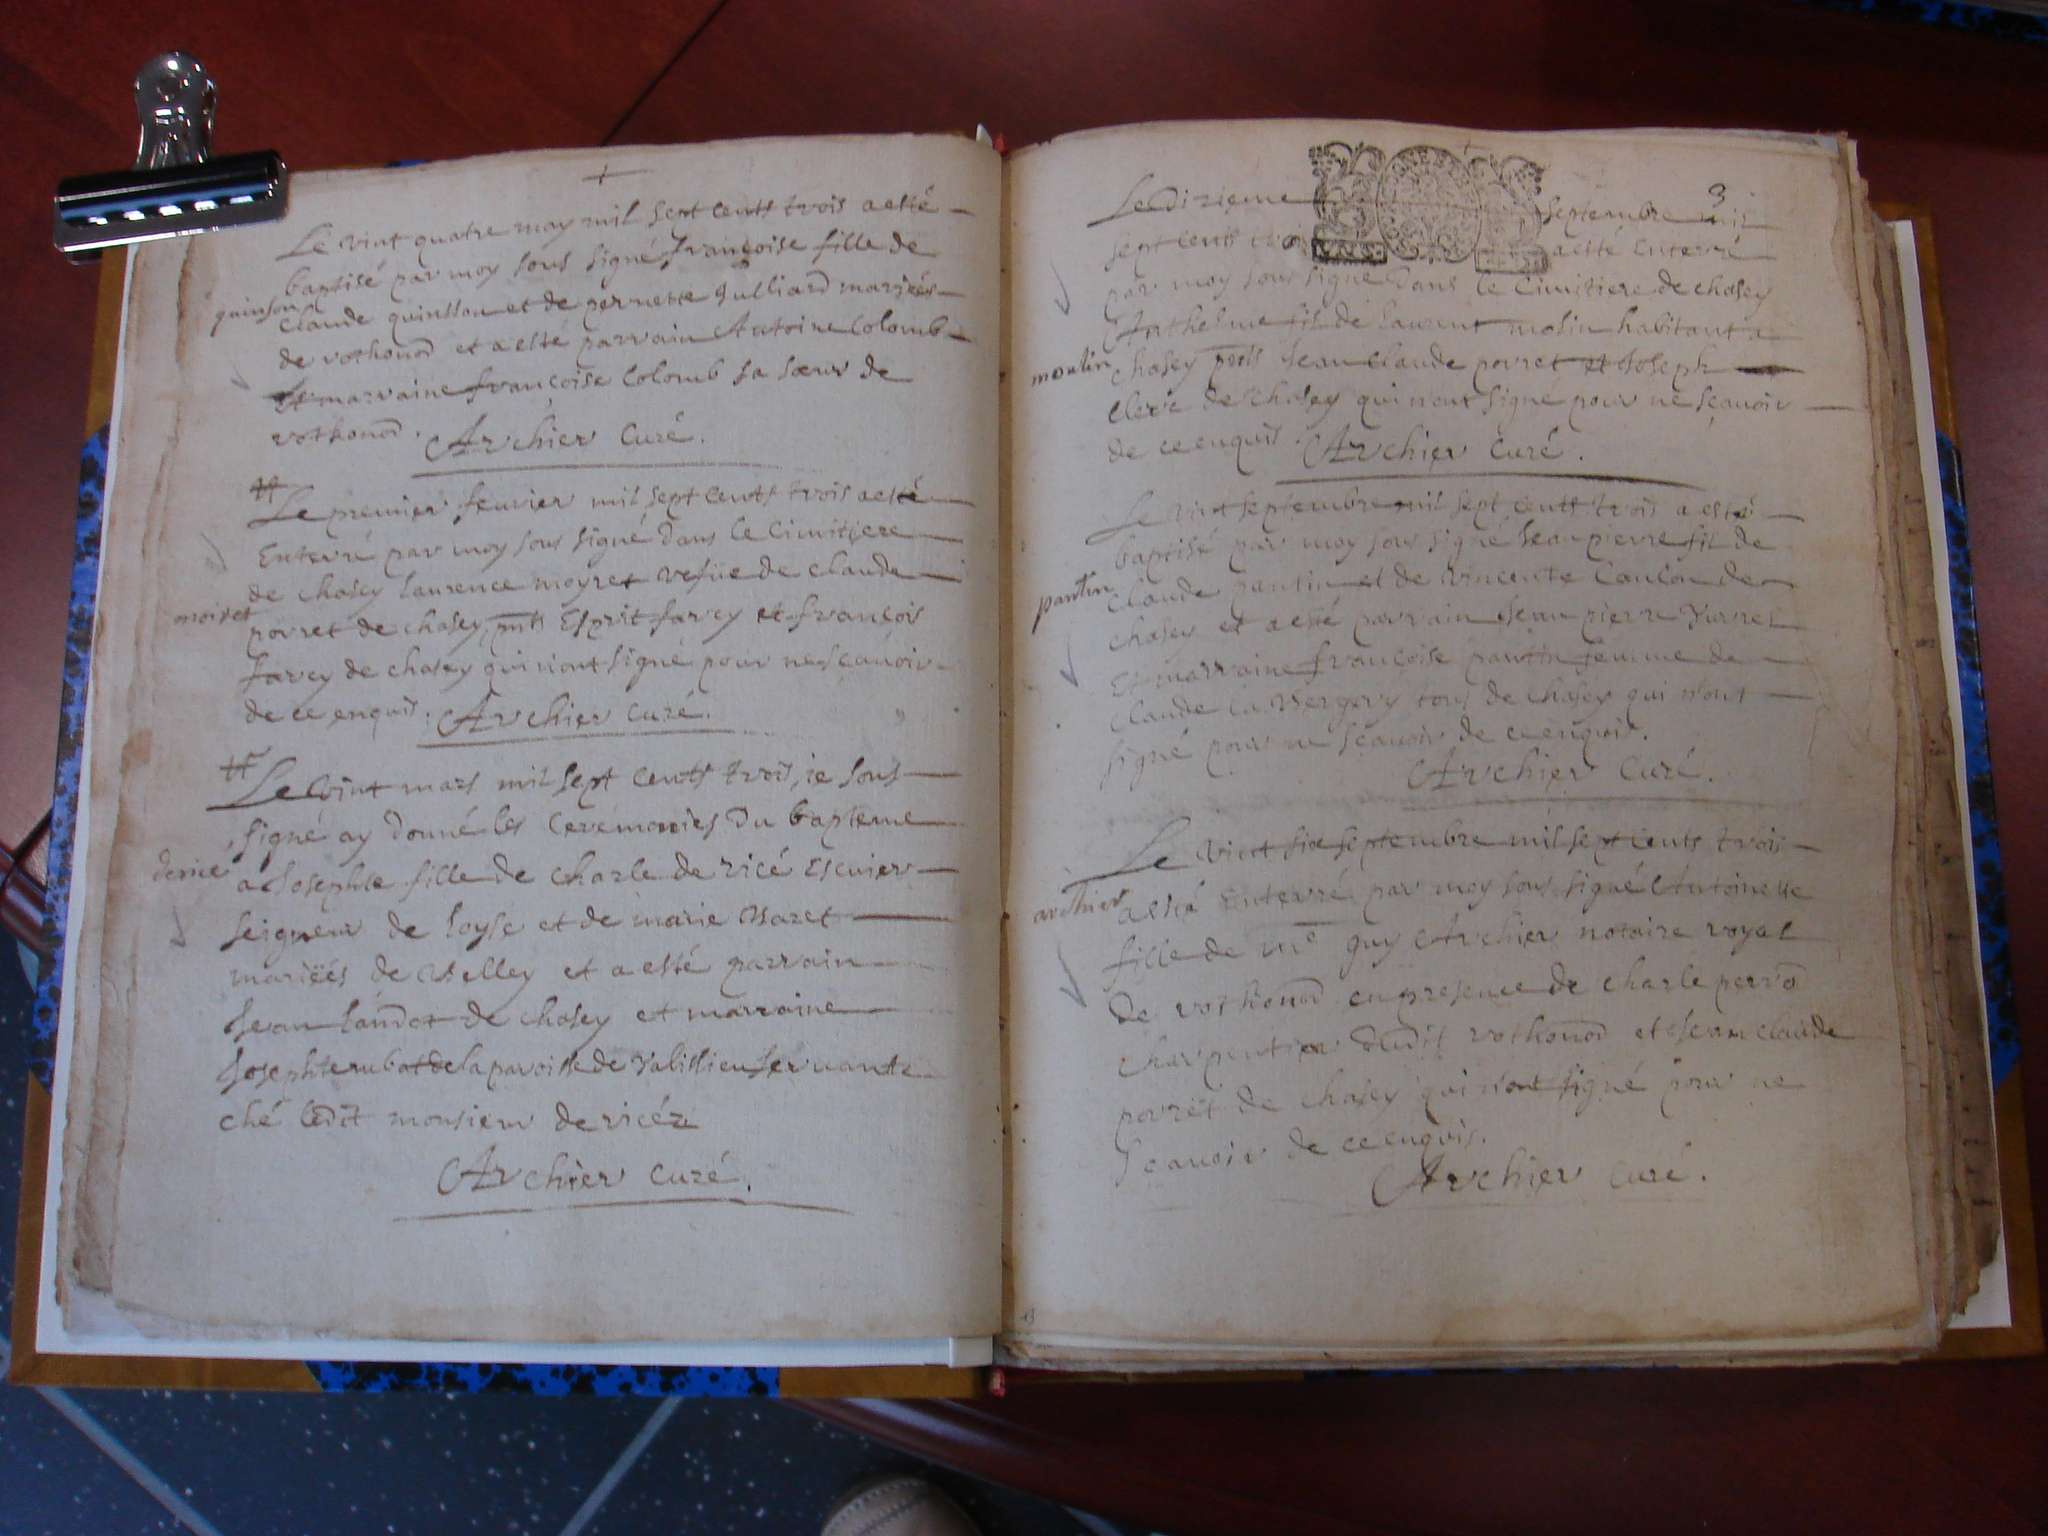 Le vint quatre may mil sept cents trois a esté
baptisé par moy sous signé francoise fille de
quinson
claude quinsson et de pernette gulliard mariéés
de vothonod et a esté parrain Antoine Colomb
Et marraine francoise Colomb sa sœur de
vothonod. Archier Curé.
Le premier feuvier mil sept cents trois a esté
Enterré par moy sous signé dans le Cimitiere
de chasey laurence moyret vefue de claude
moiret
povret de chasey pnts Esprit farcy et francois
farcy de chasey qui n'ont signé pour ne scauoir
de ce enquis. Archier Curé.
Le vint mars mil sept cents trois, ie sous
signé ay donné les Ceremonies du bapteme
derice
a Josephte fille de Charle de ricé Escuier
seigneur de loyse et de marie Baret
mariëés de Velley et a esté parrain
Jean landot de chasey et marraine
Josephte rubat de la paroisse de Valissieu servante
ché ledit monsieur de ricéz
Archier Curé.
3
Le Dixieme Septembre mil
sept cents trois a esté Enterré
par moy sous signé Dans le Cimitiere de chasey
Anthelme fils de laurent molin habitant a
moulin
chasey pnts Jean Claude povret et Joseph
Clerc de chasey qui n'ont signé pour ne scauoir
de ce enquis. Archier Curé.
Le vint septembre mil sept cents trois a esté
baptisé par moy sous signé Jean pierre fils de
pantin
Claude pantin et de vincente Coulon de
chasey et a esté parrain Jean pierre
Et marraine francoise pantin femme de
Claude la Vergery tous de chasey qui n'ont
signé pour ne scauoir de ce enquis.
Archier Curé.
Le vint six septembre mil sept cents trois
archier
a esté Enterré par moy sous signé Antoinette
fille de me guy Archier notaire royal
de vothonod en presence de charle perrod
charpentier dudit vothonod et Jean claude
povret de chasey qui n'ont signé pour ne
scauoir de ce enquis.
Archier Curé.